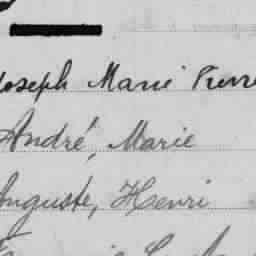 Joseph Marie Pierre
André, Marie
Auguste, Henri